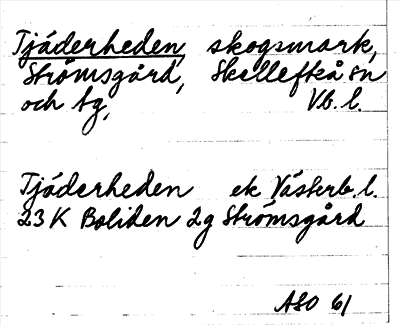 Tjäderheden, skogsmark,
Strömsgård, Skellefteå sn
och tg, Vb. l.
Tjäderheden ek Västerb. l.
23 K Boliden 2g Strömsgård
ASO 61